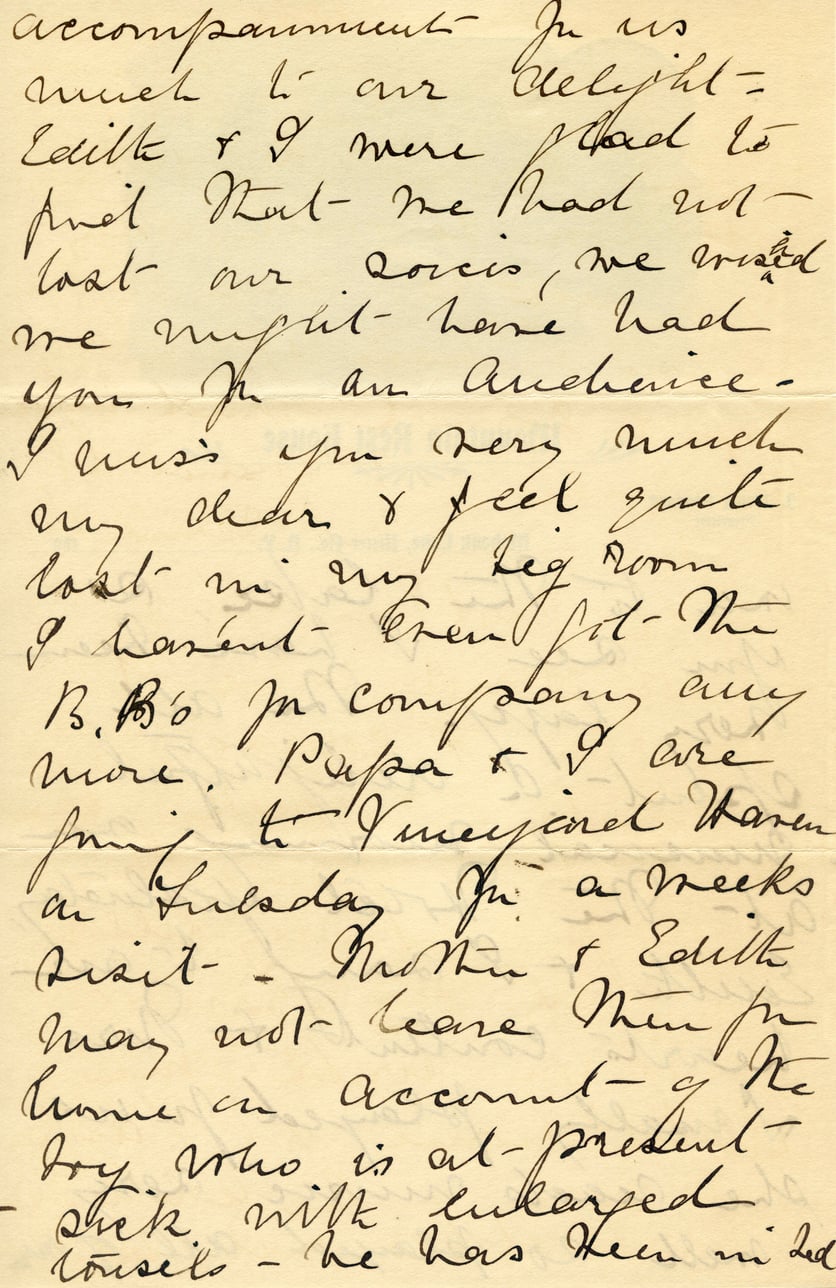 accompaniment for us
much to our delight -
Edith & I were glad to
find that we had not
lost our voices, we wished
we might have had
you for an audience -
I miss you very much
my dear & feel quite
lost in my big room
I haven't even got the
B.B's for company any
more. Papa & I are
going to Vineyard Haven
on Tuesday for a weeks
visit - Mother & Edith
may not leave then for
home on account of the
boy who is at present
sick with enlarged
tonsils - he has been in bed